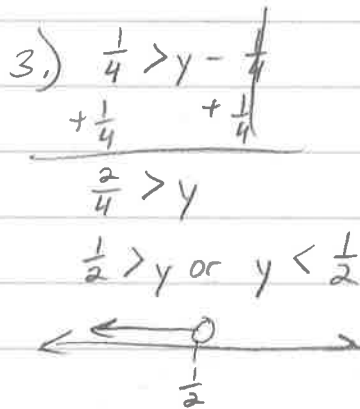 3.) 1/4 > y - 1/4
+ 1/4 + 1/4
2/4 > y
1/2 > y or y < 1/2
1/2